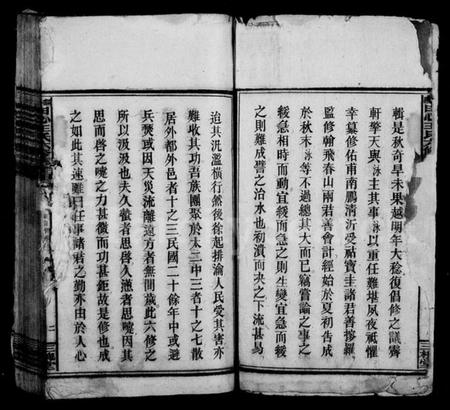 輯是秋奇旱未果越明年大稔復倡修之議霽
軒擎天與泳主其事泳以重任難堪夙夜祗懼
幸纂修佑甫南鵬清沂受祜寶圭諸君善搜羅
監修翰飛春山兩君善會計經始於夏初告成
於秋末泳等不過總其大而已竊嘗論之事之
緩急相時而動宜緩而急之則生變宜急而緩
之則難成譬之治水也初潰而決之下流甚易
迨其汎濫橫行然後徐起排瀹人民受其害亦
難收其功吾族團聚於太三中三者十之七散
居外都外邑者十之三民國二十餘年中或避
兵燹或因天災流離遠方者無間歲此六修之
所以汲汲也夫久蟄者思啓久憊者思噓因其
思而啓之噓之力甚微而功甚鉅故是修也成
之如此其速雖曰任事諸君之勤亦由於人心
三槐堂